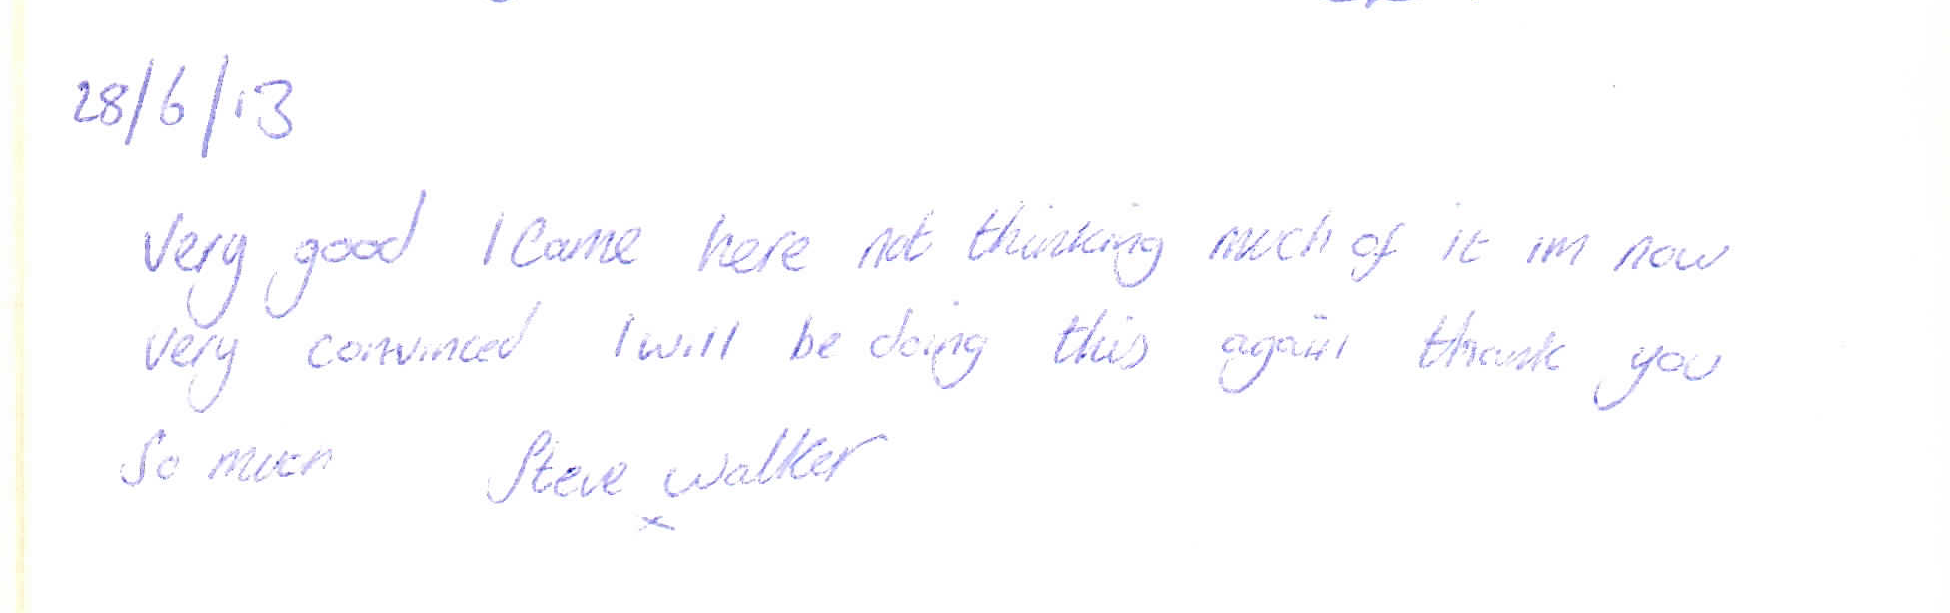 28/6/13
Very good I Came here not thinking much of it im now
very convinced I will be doing this again thank you
So much Steve walker
x